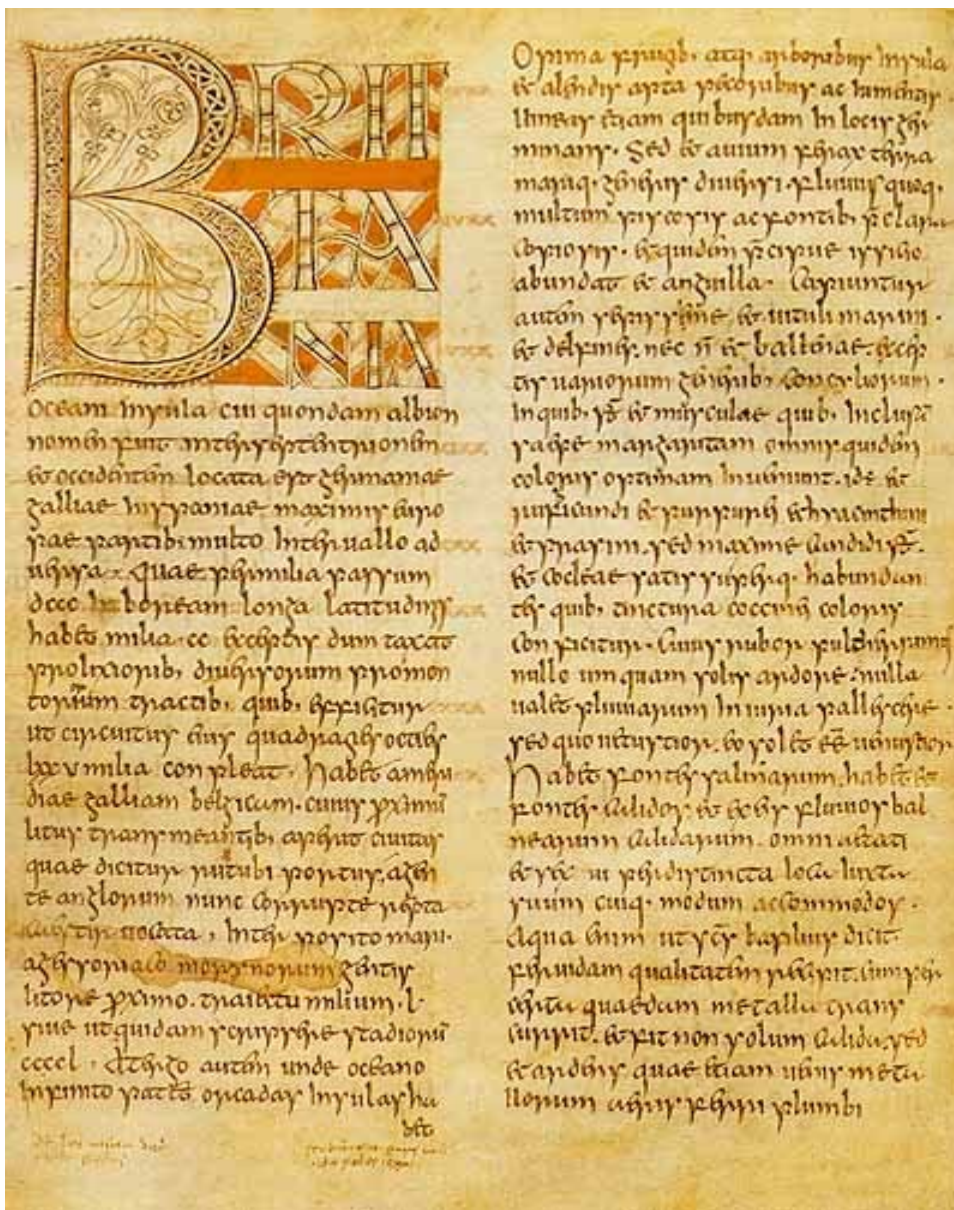 BRIT
TA
NIA
oceani insula cui quondam albion
nomen fuit inter septentrionem
et occidentem locata est germaniae
galliae hispaniae maximis euro
pae partib; multo interuallo ad
uersa. Quae per milia passuum
dccc in boream longa latitudinis
habet milia. cc exceptis dum taxat
prolixiorib; diuersorum promon
toriorum tractib; quib; efficitur
ut circuitus eius quadragies octies
lxxv milia conpleat. habet a meri
die galliam belgicam. cuius proximū
litus transmeantib; aperit ciuitas
quae dicitur rutubi portus. a gen
te anglorum nunc corrupte repta
caestir uocata, interposito mari.
a gessoriaco morynorum gentis
litore proximo. traiectu milium. l.
siue ut quidam scripsere stadiorū
ccccl. A tergo autem unde oceano
infinito patet orcadas insulas ha
bet
Opima frugib; atq. arboribus insula
et alendis apta pecoribus ac iumentis.
uineas etiam quibusdam in locis ger
minans. Sed et auium ferax terra
mariq. generis diuersi. fluuiis quoq.
multum piscosis ac fontib; p̄clara
copiosis. et quidem p̄cipue issicio
abundat et anguilla. Capiuntur
autem sepissime et uituli marini.
et delfines. nec n̄ et ballenae. excep
tis uariorum generib; concyliorum.
in quib; s̄t et musculae quib; inclusā
saepe margaritam omnis quidem
coloris optimam inueniunt. id ē et
rubicundi et purpurei et hyacinthini
et prasini. sed maxime candidi s̄t.
et cocleae satis superq. habundan
tes quib; tinctura coccinei coloris
conficitur. Cuius rubor pulcherrimus
nullo umquam solis ardore. nulla
ualet pluuiarum iniuria pallescere.
sed quo uetustior. eo solet ēē uenustior
habet fontes salinarum. habet et
fontes calidos. et ex eis fluuios bal
nearum calidarum. omni aetati
et sexui per distincta loca iuxta
suum cuiq. modum accommodos.
Aqua enim ut sc̄s basilius dicit
feruidam qualitatem recipit. cum per
certa quaedam metalla trans
currit. et fit non solum calida. sed
et ardens quae etiam uenis meta
llorum aeris ferri plumbi